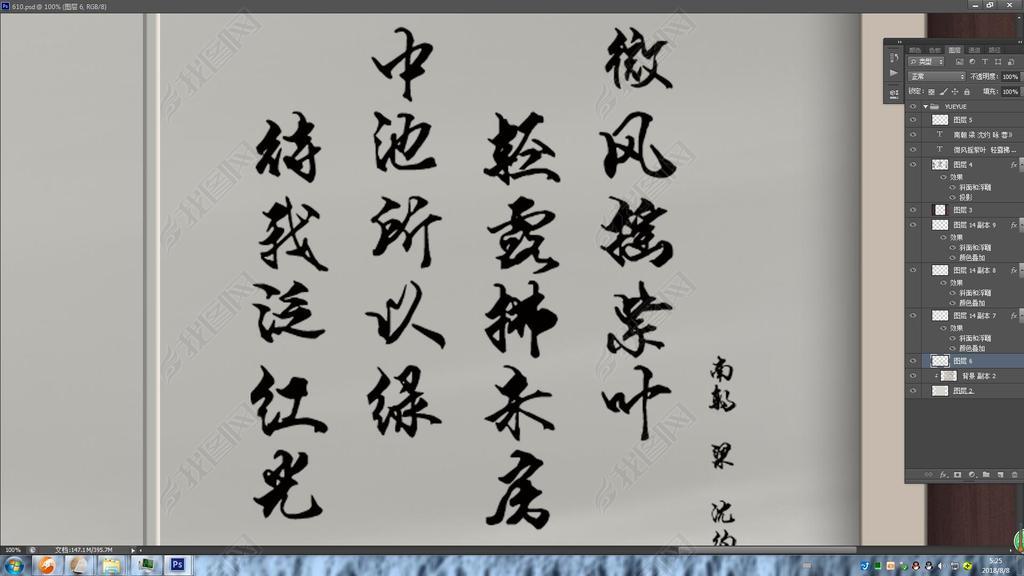 610.psd @ 100% (图层 6, RGB/8)
南朝 梁 沈约
微风摇紫叶
轻露拂朱房
中池所以绿
待我泛红光
颜色 色板 图层 通道 路径
类型
正常 不透明度: 100%
锁定: 填充: 100%
YUEYUE
图层 5
南朝 梁 沈约 咏
微风摇紫叶 轻露拂...
图层 4 fx
效果
斜面和浮雕
投影
图层 3
图层 14 副本 9 fx
效果
斜面和浮雕
颜色叠加
图层 14 副本 8 fx
效果
斜面和浮雕
颜色叠加
图层 14 副本 7 fx
效果
斜面和浮雕
颜色叠加
图层 6
背景 副本 2
图层 2
100% 文档:147.1M/395.7M
Ps
5:25
2018/8/8
找图网